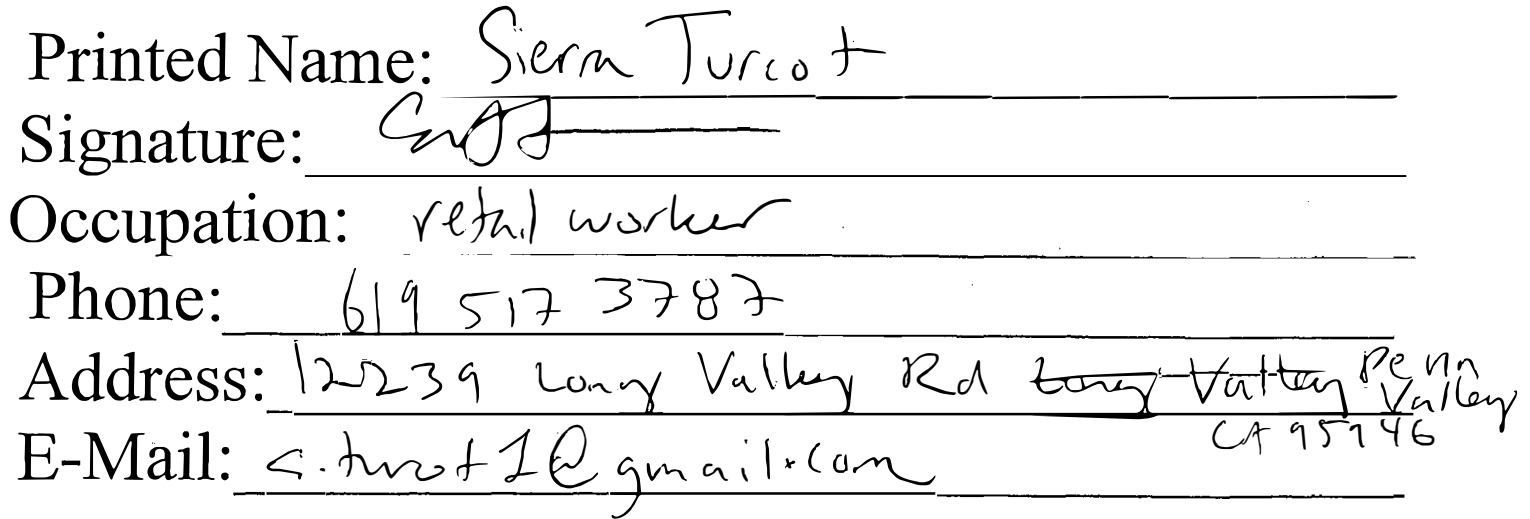 Printed Name: Sierra Turcot
Signature:
Occupation: retail worker
Phone: 619 517 3787
Address: 12239 Long Valley Rd Long Valley Penn
Valley
CA 95946
E-Mail: s.turcot1@gmail.com